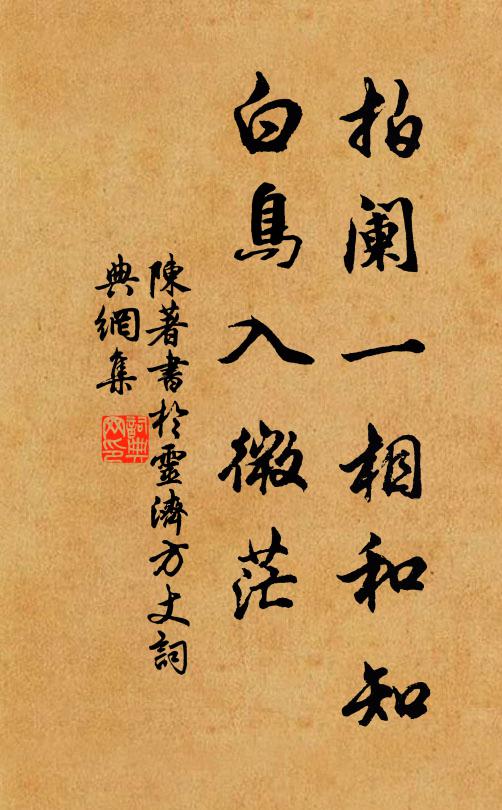 拍阑一相和知
白鳥入微茫
陳著書於靈濟方丈詞
典網集
詞典
网印